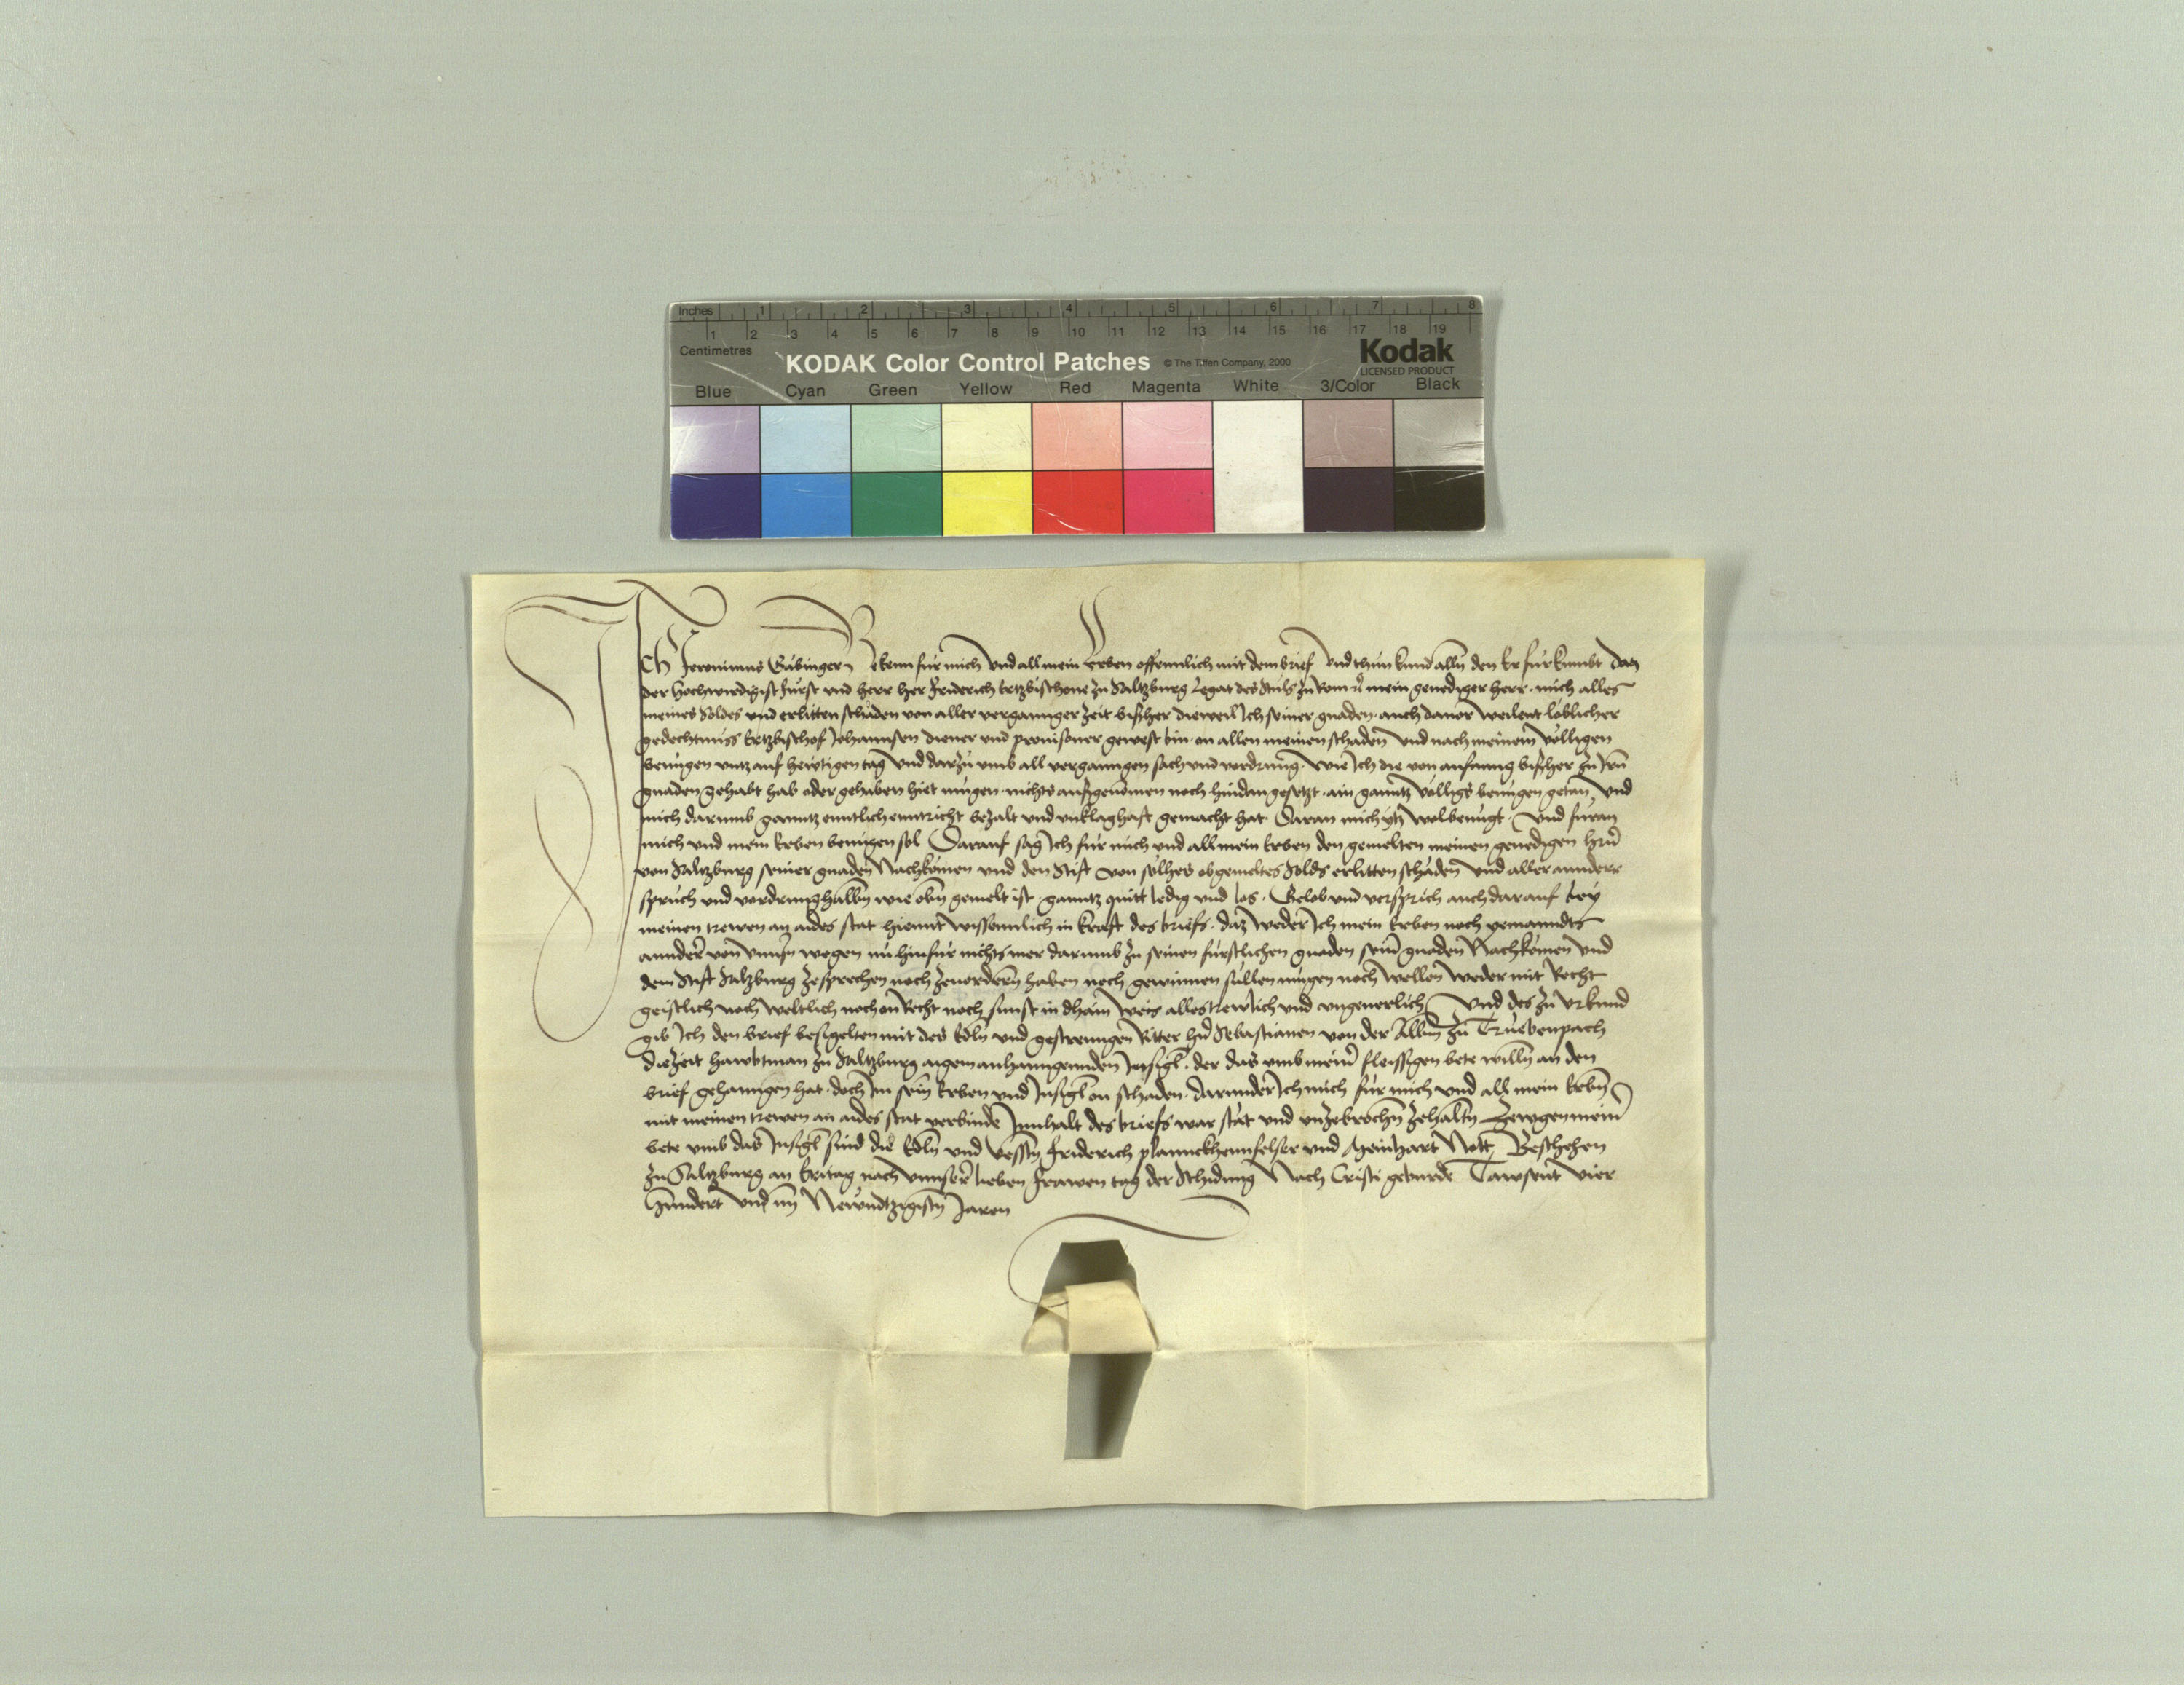 Inches 1 2 3 4 5 6 7 8
1 2 3 4 5 6 7 8 9 10 11 12 13 14 15 16 17 18 19
Centimetres
KODAK Color Control Patches © The Tiffen Company, 2000 Kodak
LICENSED PRODUCT
Blue Cyan Green Yellow Red Magenta White 3/Color Black
Ich Jeronimus Bekenn fur mich und all mein Erben offennlich mit dem brief und thun kund alln den Er furkumbt daz
der hochwirdigist furst und herr her Friderich Ertzbischove zu Saltzburg Legat des Stuls zu Rom mein genediger herr mich alles
meines Soldes und erlitten schäden von aller verganger zeit bisher dieweil Ich seiner gnaden auch davor weilent loblicher
gedechtnuss Ertzbischof Johannsen diener und provisoner gewest bin on allen meinen schaden und nach meinem völligen
benügen untz auf hewtigen tag und darzu umb all vergangen sach und vordrung wie Ich die von anfanng bisher zu Irn
gnaden gehabt hab oder gehaben hiet mugen nichts ausgenomen noch hindangesetzt ain ganntz völligs benügen getan und
mich darumb ganntz enntlich enntricht bezalt und unklaghaft gemacht hat Daran mich ytz wolbenügt und furan
mich und mein Erben benügen sol Darauf sag Ich fur mich und all mein Erben den gemelten meinen genedigen hrn
von Saltzburg seiner gnaden Nachkomen und den Stift von solhes obgemeltes Solds erlitten schäden und aller annderr
spruch und vordrunghalbn wie obn gemelt ist ganntz quitt ledig und los Gelob und versprich auch darauf bey
meinen trewen an aides stat hiemit wissenntlich in kraft des briefs daz weder Ich mein Erben noch yemanndts
annder von unnsern wegen nu hinfur nichts mer darumb zu seinen furstlichen gnaden sein gnaden Nachkomen und
dem Stift Saltzburg zesprechen noch zevordern haben noch gewinnen sullen mugen noch wellen weder mit Recht
geistlich noch weltlich noch on Recht noch sunst in dhain weis alles trewlich und ungeverlich und des zu urkund
gib Ich den brief besigelten mit des Edln und gestrenngen Ritter hrn Sebastianen von der Albm zu Trüebenpach
die zeit hawbtman zu Saltzburg aigem anhanngenden Insigl der das umb meiner fleissigen bete willn an den
brief gehanngen hat doch Im sein Erben und Insigl on schaden darunder Ich mich fur mich und all mein Erbn
mit meinen trewen an aides stat verbinde Innhalt des briefs war stät und unzebrochn zehaltn Zewgen meiner
bete umb das Insigl sind die Edln und vessten Friderich plannckhennfelser und Meinhart Nott Beschehen
zu Saltzburg an Eritag nach unnser lieben frawen tag der Schidung Nach Cristi geburde Tawsent vier
hundert und im Newndtzigistn Jaren